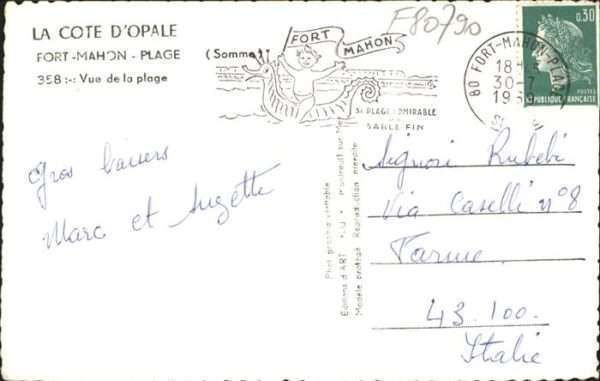 LA COTE D'OPALE
FORT-MAHON - PLAGE
(Somme)
358 :-: Vue de la plage
FORT
MAHON
SA PLAGE ADMIRABLE
SABLE FIN
F80790
80 FORT-MAHON-PLAGE
18 H
30-7
19
0,30
POSTES
RÉPUBLIQUE FRANÇAISE
Gros baisers
Marc et Suzette
Photographie véritable
Editions d'ART
Montreuil sur
Modèle protégé. Reproduction interdite
Signori Rubebi
Via Caselli n°8
Parme
43.100.
Italie